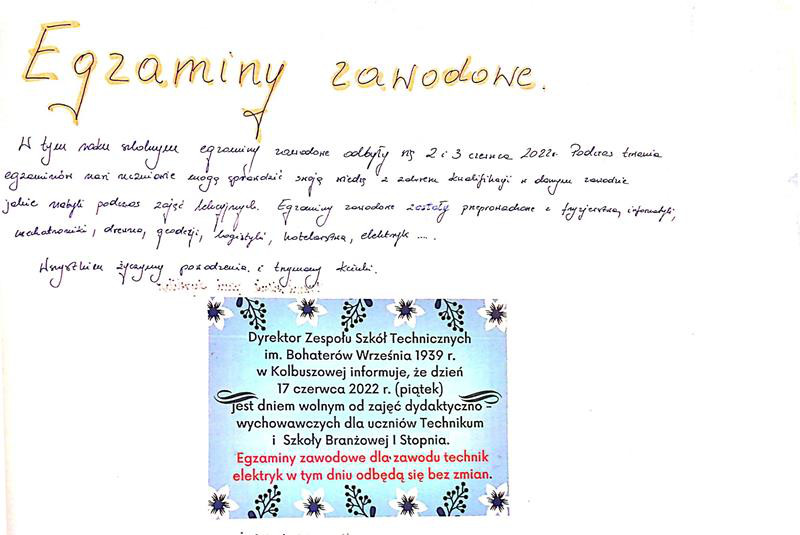 Egzaminy zawodowe.
W tym roku szkolnym egzaminy zawodowe odbyły się 2 i 3 czerwca 2022r. Podczas trwania
egzaminów nasi uczniowie mogą sprawdzić swoją wiedzę z zakresu kwalifikacji w danym zawodzie
jakie nabyli podczas zajęć lekcyjnych. Egzaminy zawodowe zostały przeprowadzone z fryzjerstwa, informatyki,
mechatroniki, drewna, geodezji, logistyki, hotelarstwa, elektryk ....
Wszystkim życzymy powodzenia i trzymamy kciuki.
Dyrektor Zespołu Szkół Technicznych
im. Bohaterów Września 1939 r.
w Kolbuszowej informuje, że dzień
17 czerwca 2022 r. (piątek)
jest dniem wolnym od zajęć dydaktyczno -
wychowawczych dla uczniów Technikum
i Szkoły Branżowej I Stopnia.
Egzaminy zawodowe dla zawodu technik
elektryk w tym dniu odbędą się bez zmian.